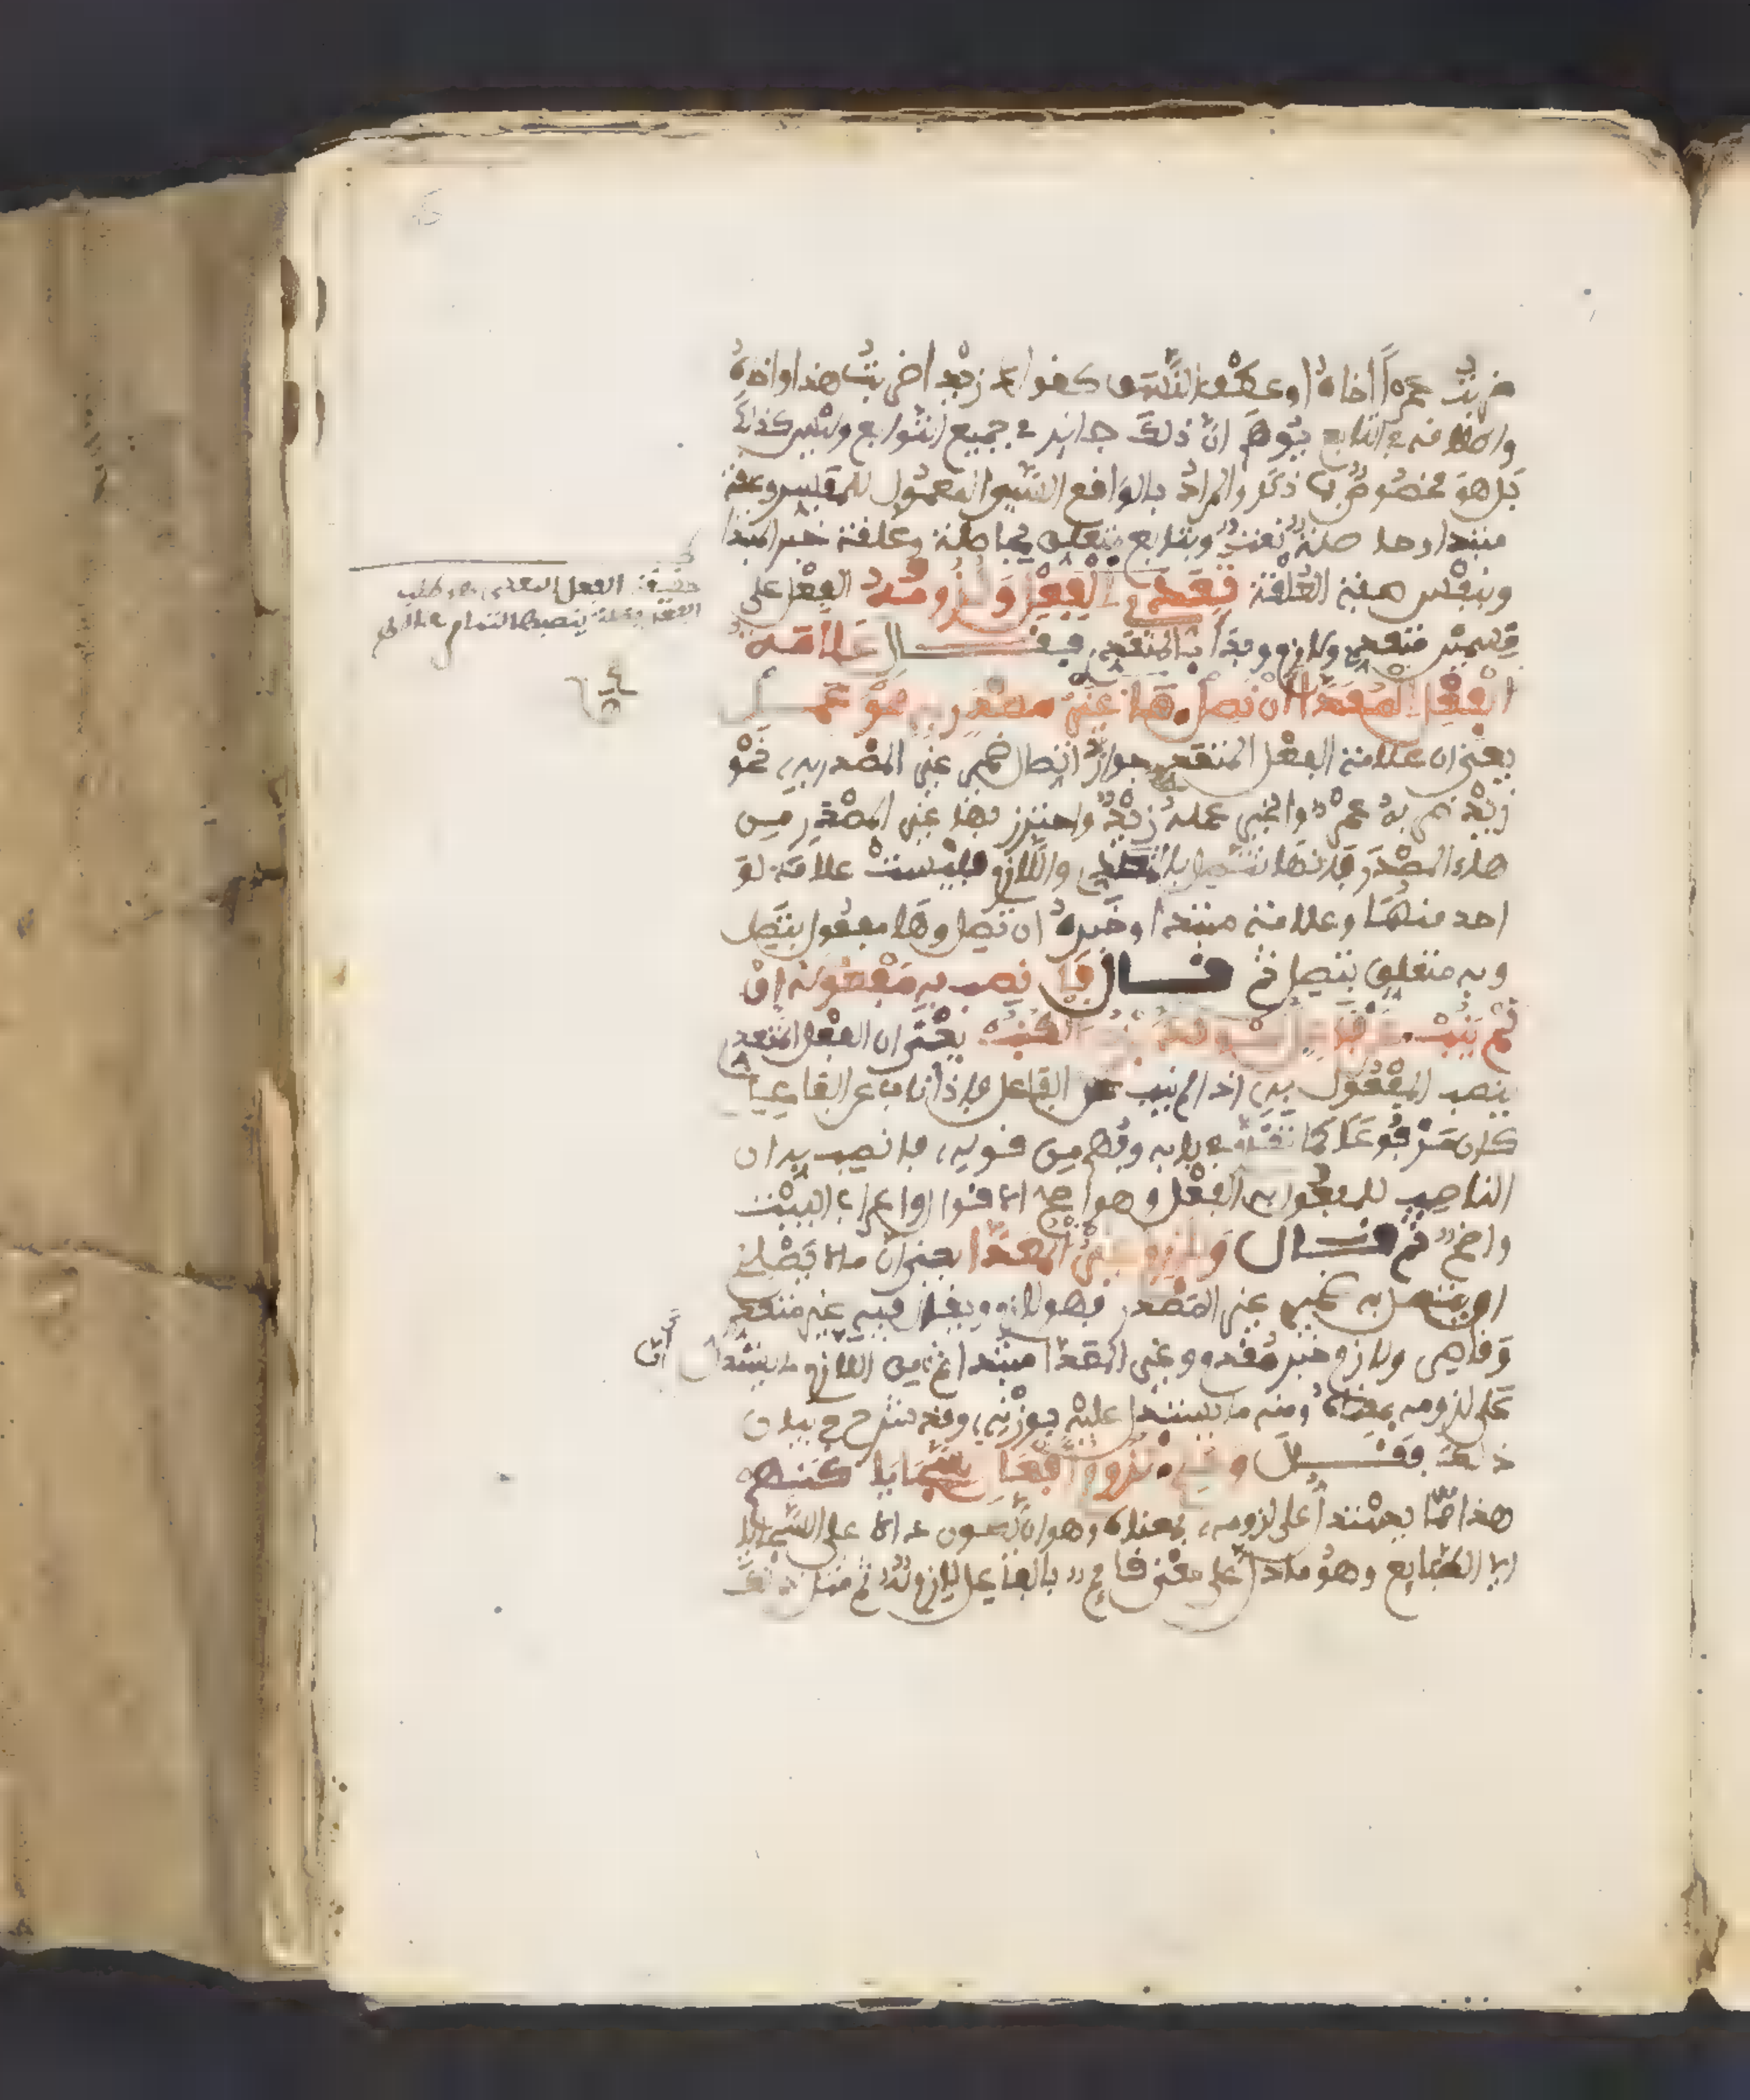 ضربت عمرا أخاه او عطف النسق كقولك زيد اضربت هندا واخاه
واطلاقه في التابع يوهم ان ذلك جائز في جميع التوابع وليس كذلك
بل هو مخصوص بما ذكر والمراد بالواقع السببي المعمول للمفسر وعلقة
مبتدا وحاصلة نعت وبتابع متعلق بحاصلة وعلقة خبر المبتدا
وبنفس هي العلقة تعدي الفعل ولزومه الفعل على
قسمين متعد ولازم وبدأ بالمتعدي فقال علامة
الفعل المعدى ان تصل ها غير مصدر به نحو عمل
يعني ان علامة الفعل المتعدي جواز اتصال ضمير غير المصدر به نحو
زيد ضربه عمرو والخير عمله زيد واحترز بها غير المصدر من
هاء المصدر فانها تتصل بالمتعدي واللازم فليست علامة لو
احد منهما وعلامة مبتدا وخبره ان تصل وها مفعول بتصل
وبه متعلق بتصل ثم قال فانصب به مفعوله ان
لم ينب عن فاعل نحو تدبرت الكتب يعني ان الفعل المتعدي
ينصب المفعول به اذا لم ينب عن الفاعل فاذا ناب عن الفاعل
كان مرفوعا كما تقدم في بابه وفهم من قوله فانصب به ان
الناصب للمفعول به الفعل وهو اصح الاقوال واعراب البيت
واضح ثم قال ولازم غير المعدى يعني ان ما لا يصلح
ان يتصل به ضمير غير المصدر فهو لازم ويقال فيه غير متعد
وقاصر ولازم خبر مقدم وغير المعدى مبتدا ثم ان من اللازم ما يستدل
على لزومه بمعناه ومنه ما يستدل عليه بوزنه وقد شرع في بيان
ذلك فقال وحتم لزوم افعال السجايا كنهم
هذا مما يستدل على لزومه بمعناه وهو ان يكون دالا على السجايا
اي الطبايع وهو ما دل على معنى قائم بالفاعل لازم له ثم مثل ذلك
حقيقة الفعل المتعدي هو طلب